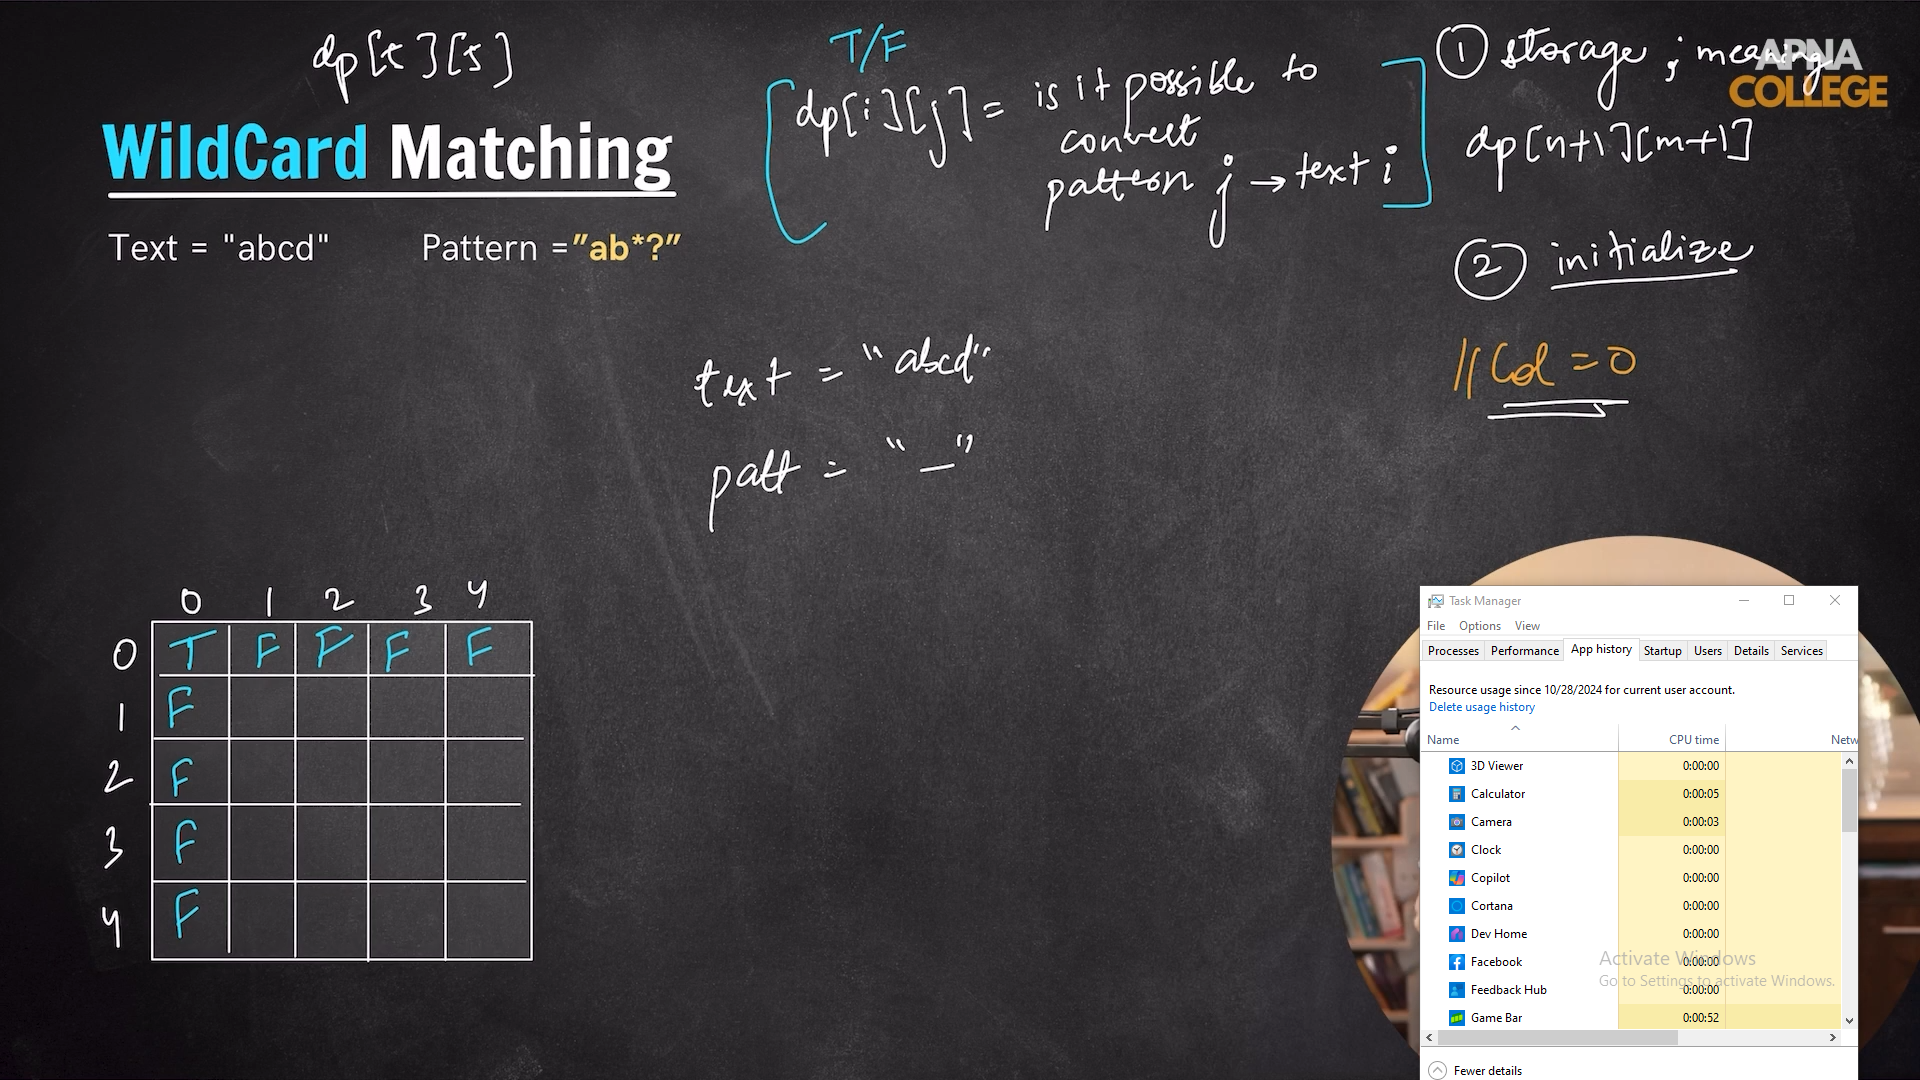 dp[t][j]
WildCard Matching
Text = "abcd" Pattern ="ab*?"
T/F
dp[i][j] = is it possible to
convert
pattern j → text i
① storage ; meaning
APNA
COLLEGE
dp[n+1][m+1]
② initialize
// Col = 0
text = "abcd"
patt = "_"
0 1 2 3 4
0 T F F F F
1 F
2 F
3 F
4 F
Task Manager
File Options View
Processes Performance App history Startup Users Details Services
Resource usage since 10/28/2024 for current user account.
Delete usage history
Name CPU time Netw
3D Viewer 0:00:00
Calculator 0:00:05
Camera 0:00:03
Clock 0:00:00
Copilot 0:00:00
Cortana 0:00:00
Dev Home 0:00:00
Facebook 0:00:00
Feedback Hub 0:00:00
Game Bar 0:00:52
Activate Windows
Go to Settings to activate Windows.
Fewer details